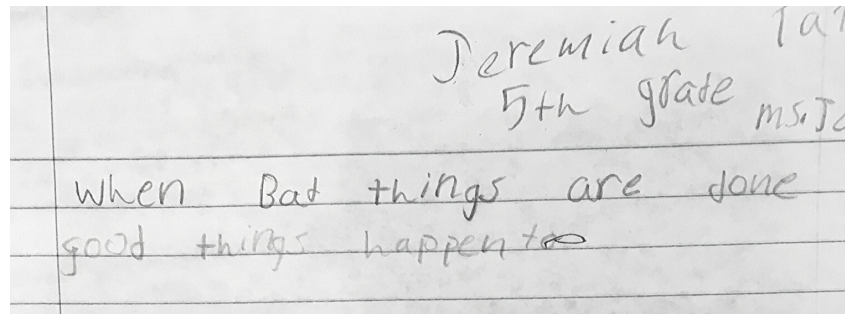 Jeremiah
5th grade
ms.
When Bad things are done
good things happen too